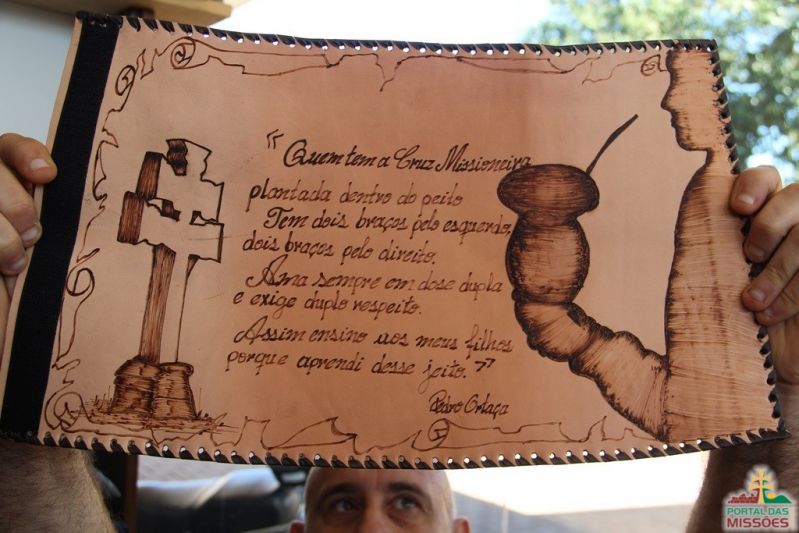 "Quem tem a Cruz Missioneira
plantada dentro do peito
Tem dois braços pelo esquerdo,
dois braços pelo direito,
Ama sempre em dose dupla
e exige duplo respeito.
Assim ensino aos meus filhos
porque aprendi desse jeito."
Pedro Ortaça
PORTAL DAS
MISSÕES